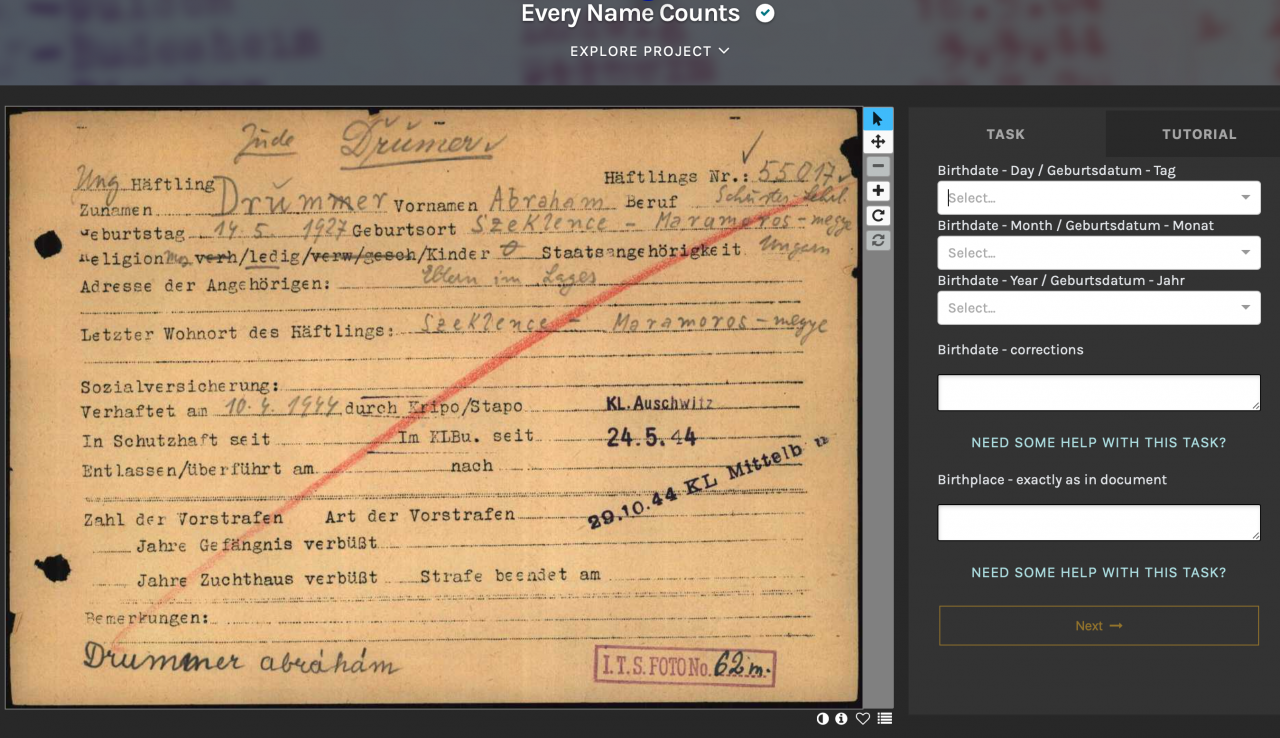 Every Name Counts
EXPLORE PROJECT
Jude Drümer
Ung Häftling
Häftlings Nr.: 55017
Zunamen Drümmer Vornamen Abraham Beruf Schuster Lehrl.
Geburtstag 14.5. 1927 Geburtsort Szeklence - Maramoros-megye
Religion verh/ledig/verw/gesch/Kinder 0 Staatsangehörigkeit Ungarn
Adresse der Angehörigen: Eltern im Lager
Letzter Wohnort des Häftlings: Szeklence - Maramoros-megye
Sozialversicherung:
Verhaftet am 10.4. 1944 durch Kripo/Stapo KL.Auschwitz
In Schutzhaft seit Im KLBu. seit 24.5.44
Entlassen/überführt am nach
29.10.44 KL Mittelb u
Zahl der Vorstrafen Art der Vorstrafen
Jahre Gefängnis verbüßt
Jahre Zuchthaus verbüßt Strafe beendet am
Bemerkungen:
Drummer abráhám
I.T.S. FOTO No. 62 m.
TASK
TUTORIAL
Birthdate - Day / Geburtsdatum - Tag
Select...
Birthdate - Month / Geburtsdatum - Monat
Select...
Birthdate - Year / Geburtsdatum - Jahr
Select...
Birthdate - corrections
NEED SOME HELP WITH THIS TASK?
Birthplace - exactly as in document
NEED SOME HELP WITH THIS TASK?
Next →